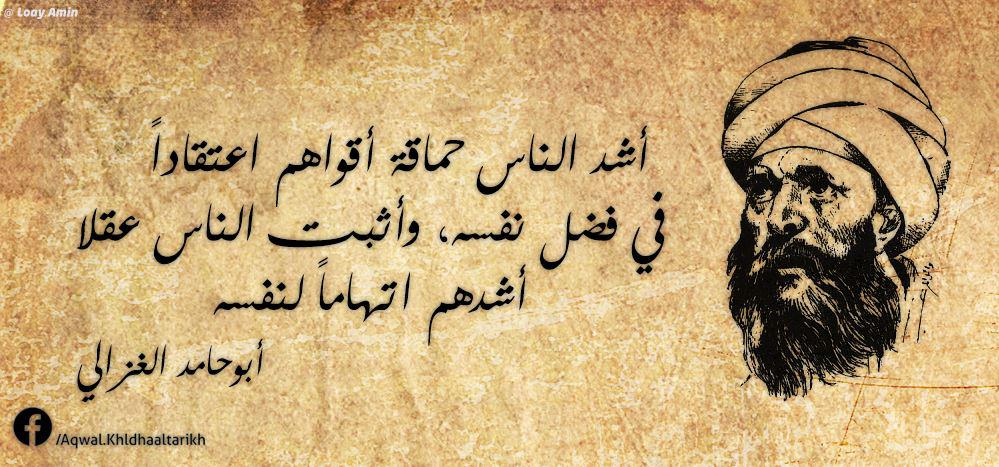 @ Loay Amin
أشد الناس حماقة أقواهم اعتقاداً
في فضل نفسه، وأثبت الناس عقلا
أشدهم اتهاماً لنفسه
أبوحامد الغزالي
/Aqwal.Khldhaaltarikh